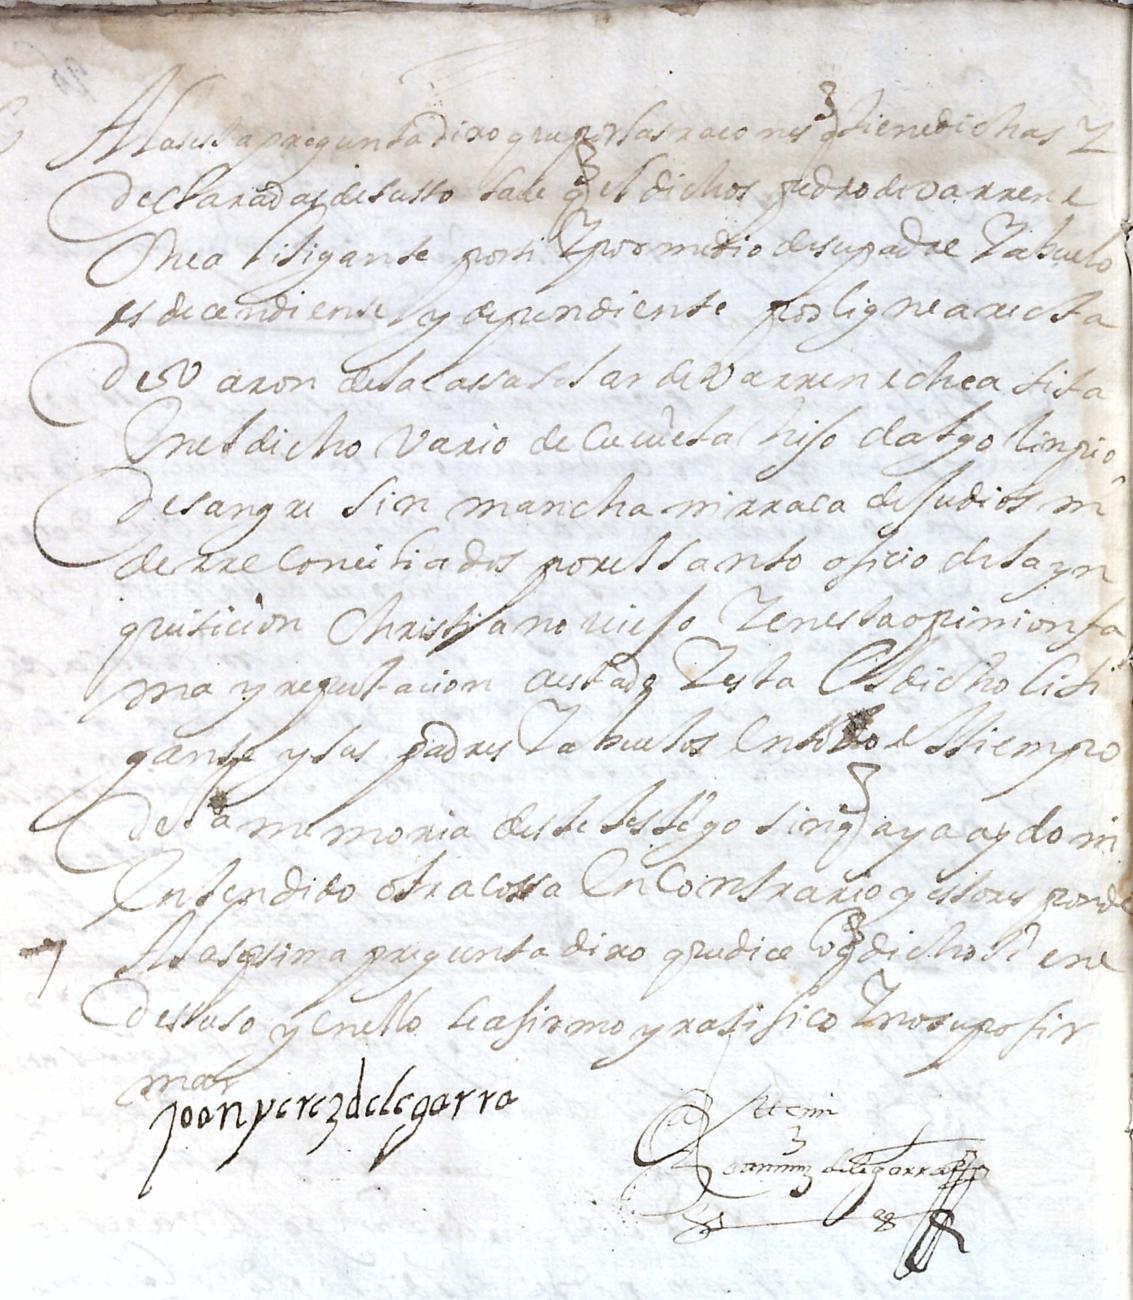 A la sesta pregunta dixo que por las raçones q tiene dichas y
declaradas de susso save q el dichos pedro de varrene
chea litigante por si y por medio de su padre y abuelo
es decendiente y dependiente por lignea recta
de varon de la cassa solar de varrenechea sita
en el dicho vario de cucuieta hijo dalgo linpio
de sangre sin mancha ni rraca de judios ni
de rreconciliados por el santo oficio de la yn
quisicion christiano viejo y en esta opinion fa
ma y reputacion a estado y esta el dicho liti
gante y sus padres y abuelos en todo el tiempo
de la memoria deste testigo sin q aya aydo ni
entendido otra cossa en contrario y esto responde
7 A la septima pregunta dixo que dice lo q dicho tiene
de susso y en ello se afirmo y ratifico y no supo fir
mar
joan perez de legarra
Ante mi
de legarra